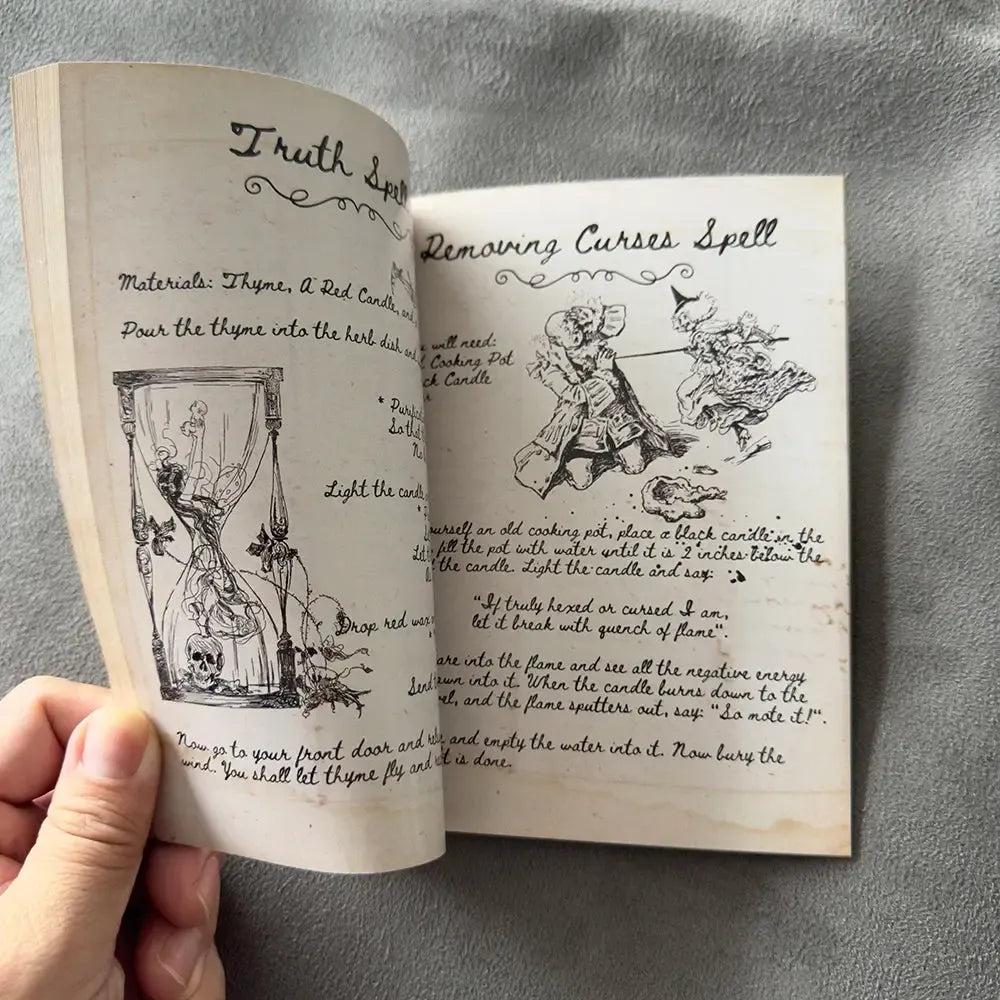 Truth Spell
Materials: Thyme, A Red Candle, and
Pour the thyme into the herb dish and
* Purific
So that
No
Light the candle
Let
Drop red wax
Send
Now go to your front door and
wind. You shall let thyme fly and
Removing Curses Spell
will need:
Cooking Pot
ck Candle
r
ourself an old cooking pot, place a black candle in the
, fill the pot with water until it is 2 inches below the
the candle. Light the candle and say:
"If truly hexed or cursed I am,
let it break with quench of flame".
are into the flame and see all the negative energy
awn into it. When the candle burns down to the
el, and the flame sputters out, say: "So mote it!".
and empty the water into it. Now bury the
t is done.